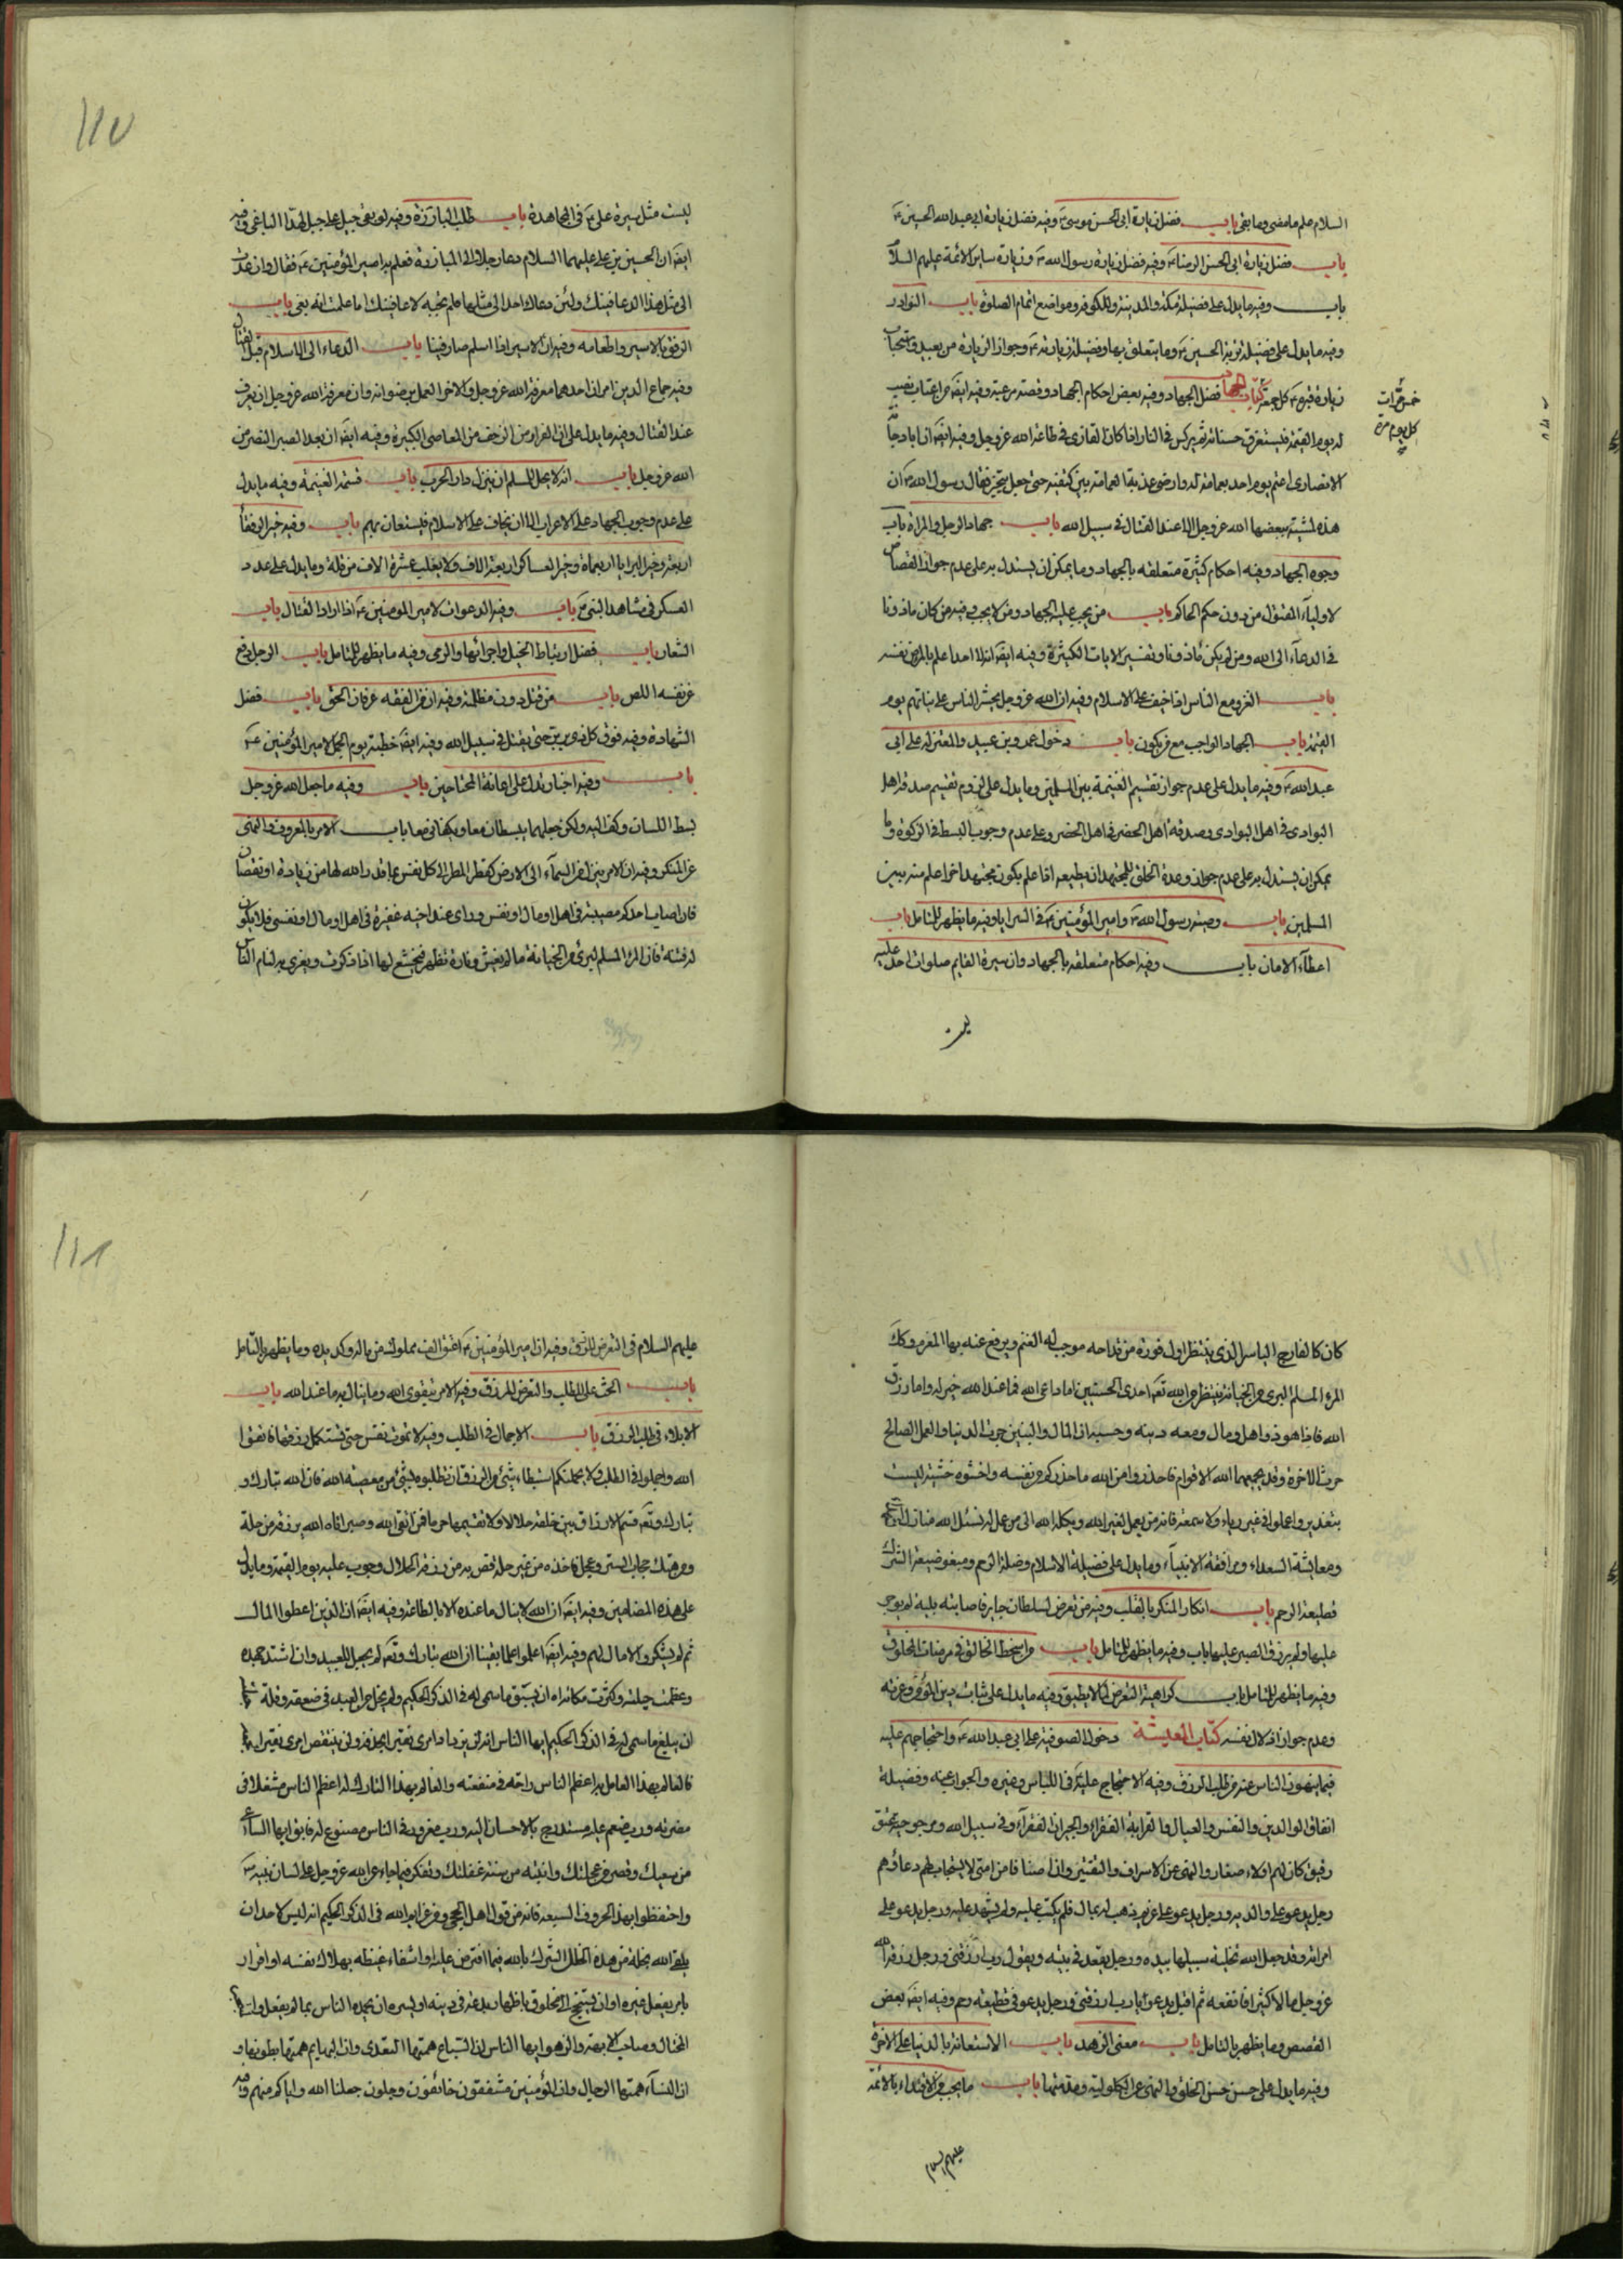 السلام علم ما مضى وما بقى باب فضل زيارة ابى الحسن موسى ع وفيه فضل زيارة ابى عبد الله الحسين ع
باب فضل زيارة ابى الحسن الرضا ع وفيه فضل زيارة رسول الله ص وزيارة ساير الائمة عليهم السلام
باب وفيه ما يدل على فضيلة مكة والمدينة والكوفة ومواضع اتمام الصلوة باب النوادر
وفيه ما يدل على فضيلة تربة الحسين ع وما يتعلق بها وفضيلة زيارته ع وجواز الزيارة من بعيد واستحباب
زيارة قبره ع كل جمعة كتاب الجهاد فضل الجهاد وفيه بعض احكام الجهاد وفيه ايضا من اغتاب
خمس مرات
كل يوم مرة
له يوم القيمة فيستغرق حسناته ثم يركس فى النار اذا كان الغازى فى طاعة الله عز وجل وفيه ايضا ان ابا دجانة
الانصارى اعتم يوم احد بعمامة له وارخى عذبة العمامة بين كتفيه حتى جعل يتبختر فقال رسول الله ص ان
هذه لمشية يبغضها الله عز وجل الا عند القتال فى سبيل الله باب جهاد الرجل والمراة باب
وجوه الجهاد وفيه احكام كثيرة متعلقه بالجهاد وما يمكن ان يستدل به على عدم جواز القصاص
لاولياء المقتول من دون حكم الحاكم باب من يجب عليه الجهاد ومن لا يجب وفيه من كان ماذونا
فى الدعاء الى الله ومن لم يكن ماذونا وتفسير الايات الكثيرة وفيه ايضا انه لا احد اعلم بالمرء من نفسه
باب الغزو مع الناس اذا خيف على الاسلام وفيه ان الله عز وجل يحشر الناس على نياتهم يوم
القيمة باب الجهاد الواجب مع من يكون باب دخول عمرو بن عبيد والمعتزلة على ابى
عبد الله ع وفيه ما يدل على عدم جواز تقسيم الغنيمة بين المسلمين وما يدل على لزوم تقسيم صدقة اهل
البوادى فى اهل البوادى وصدقة اهل الحضر فى اهل الحضر وعلى عدم وجوب البسط فى الزكوة وما
يمكن ان يستدل به على عدم جواز وعدة الخلق للمجتهد ان يطيعه اذا علم بكون مجتهد اخر اعلم منه بين
المسلمين باب وصية رسول الله ص وامير المؤمنين ع فى السرايا وفيه ما يظهر للمتامل باب
اعطاء الامان باب وفيه احكام متعلقه بالجهاد وان سيرة القايم صلوات الله عليه
ليست
ليست مثل سيرة على ع فى المجاهدة باب طلب المبارزة وفيه لو بغى جبل على جبل لهد الله الباغى وفيه
ايضا ان الحسين بن على عليهما السلام دعا رجلا الى المبارزة فعلم به امير المؤمنين ع فقال وان عدت
الى مثل هذا لاعاقبنك ولئن دعاك احد الى مثلها فلم تجبه لاعاقبنك اما علمت انه بغى باب
الرفق بالاسير واطعامه وفيه ان الاسير اذا اسلم صار فيئا باب الدعاء الى الاسلام قبل القتال
وفيه جماع الدين امران احدهما معرفة الله عز وجل والاخر العمل برضوانه وان معرفة الله عز وجل ان يعرف
عند القتال وفيه ما يدل على ان الفرار من الزحف من المعاصى الكبيرة وفيه ايضا ان بعد الصبر النصر من
الله عز وجل باب انه لا يحل للمسلم ان ينزل دار الحرب باب قسمة الغنيمة وفيه ما يدل
على عدم وجوب الجهاد على الاعراب الا ان يخاف على الاسلام فيستعان بهم باب وفيه خير الرفقاء
اربعة وخير السرايا اربعماة وخير العساكر اربعة الاف ولا يغلب عشرة الاف من قلة وما يدل على عدد
العسكر فى مشاهد النبى ص باب وفيه الدعوات لامير المومنين ع اذا اراد القتال باب
الشعار باب فضل ارتباط الخيل واجرائها والرمى وفيه ما يظهر للمتامل باب الرجل يدفع
عن نفسه اللص باب من قتل دون مظلمته وفيه ان من الفقه عرفان الحق باب فضل
الشهادة وفيه فوق كل ذى بر بر حتى يقتل فى سبيل الله وفيه ايضا خطبة يوم الجمل لامير المؤمنين ع
باب وفيه اخبار تدل على اعانة المحتاجين باب وفيه ما جعل الله عز وجل
بسط اللسان وكف اليد ولكن جعلهما يبسطان معا ويكفان معا باب الامر بالمعروف والنهى
عن المنكر وفيه ان الامر ينزل من السماء الى الارض كقطر المطر الى كل نفس بما قدر الله لها من زيادة او نقصان
فان اصاب احدكم مصيبة فى اهل او مال او نفس وراى عند اخيه غفيرة فى اهل او مال او نفس فلا يكون
له فتنة فان المرء المسلم لبرئ من الخيانة ما لم يغش دناءة تظهر فيخشع لها اذا ذكرت ويغرى به لئام الناس
١١٧
كان كالفالج الياسر الذى ينتظر اول فوزة من قداحه موجب له الغنم ويرفع عنه بها المغرم وكذلك
المرء المسلم البرئ من الخيانة ينتظر من الله تعالى احدى الحسنيين اما داعى الله فما عند الله خير له واما رزق
الله فاذا هو ذو اهل ومال ومعه دينه وحسبه ان المال والبنين حرث الدنيا والعمل الصالح
حرث الاخرة وقد يجمعهما الله لاقوام فاحذروا من الله ما حذركم من نفسه واخشوه خشية ليست
بتعذير واعملوا فى غير رياء ولا سمعة فانه من يعمل لغير الله ويكله الله الى من عمل له نسئل الله منازل الشهداء
ومعايشة السعداء ومرافقة الانبياء وما يدل على فضيلة الاسلام وصلة الرحم ومبغوضية الشرك
قطيعة الرحم باب انكار المنكر بالقلب وفيه من تعرض لسلطان جاير فاصابته بلية لم يوجر
عليها ولم يرزق الصبر عليها باب وفيه ما يظهر للمتامل باب من اسخط الخالق فى مرضات المخلوق
وفيه ما يظهر للمتامل باب كراهية التعرض لما لا يطيق وفيه ما يدل على ثبات دين المؤمن وعزته
وعدم جواز اذلال نفسه كتاب المعيشة دخول الصوفية على ابى عبد الله ع واحتجاجهم عليه
فيما ينهون الناس عنه من طلب الرزق وفيه الاحتجاج عليه ع فى اللباس وغيره والجواب عنه وفضيلة
انفاق الوالدين والنفس والعيال والقرابة الفقراء والجيران الفقراء وفى سبيل الله ومرجوحية عتق
رقيق كان لهم اولاد صغار والنهى عن الاسراف والتقتير وان اصنافا من امتى لا يستجاب لهم دعاؤهم
رجل يدعو على والديه ورجل يدعو على غريم ذهب له بمال فلم يكتب عليه ولم يشهد عليه ورجل يدعو على
امراته وقد جعل الله تخلية سبيلها بيده ورجل يقعد فى بيته ويقول رب ارزقنى ورجل رزقه الله
عز وجل مالا كثيرا فانفقه ثم اقبل يدعو يا رب ارزقنى ورجل يدعو فى قطيعة رحم وفيه ايضا بعض
القصص وما يظهر بالتامل باب معنى الزهد باب الاستعانة بالدنيا على الاخرة
وفيه ما يدل على حسن حسن الخلق والنهى عن الكلولية ومذمتها باب ما يجب من الاقتداء بالائمة
عليهم السلام
عليهم السلام فى التعرض للرزق وفيه ان امير المؤمنين ع اعتق الف مملوك من ماله وكد يده وما يظهر بالتامل
باب الحث على الطلب والتعرض للرزق وفيه الامر بتقوى الله وما ينال به ما عند الله باب
الابلاء فى طلب الرزق باب الاجمال فى الطلب وفيه لا تموت نفس حتى تستكمل رزقها فاتقوا
الله واجملوا فى الطلب ولا يحملنكم استبطاء شئ من الرزق ان تطلبوه بشئ من معصية الله فان الله تبارك و
تبارك وتعالى قسم الارزاق بين خلقه حلالا ولا تقسيمها حراما فمن اتقى الله وصبر اتاه الله برزقه من حله
ومن هتك حجاب الستر وعجل فاخذه من غير حله قص به من رزقه الحلال وحوسب عليه يوم القيمة وما يدل
على هذه المضامين وفيه ايضا ان الله لا ينال ما عنده الا بالطاعة وفيه ايضا ان الذين اعطوا المال
ثم لم يشكروا لا مال لهم وفيه ايضا اعلموا علما يقينا ان الله تبارك وتعالى لم يجعل للعبد وان اشتد جهده
وعظمت حيلته وكثرت مكائده ان يسبق ما سمى له فى الذكر الحكيم ولم يحل من العبد فى ضعفه وقلة حيلته
ان يبلغ ما سمى له فى الذكر الحكيم ايها الناس انه لن يزداد امرئ نقيرا بحذقه ولن ينتقص امرئ نقيرا لحمقه
فالعالم بهذا العامل به اعظم الناس راحة فى منفعته والعالم بهذا التارك له اعظم الناس شغلا فى
مضرته ورب منعم عليه مستدرج بالاحسان اليه ورب مغرور فى الناس مصنوع له فابق ايها الساعى
من سعيك وقصر من عجلتك وانتبه من سنة غفلتك وتفكر فيما جاء عن الله عز وجل على لسان نبيه ص
واحتفظوا بهذه الحروف السبعة فانه من قول اهل الحجى ومن عزايم الله فى الذكر الحكيم انه ليس لاحد ان
يلقى الله بخلة من هذه الخلال الشرك بالله فيما افترض عليه او اشفاء غيظه بهلاك نفسه او اقرار
بامر يفعل غيره او ان يستنجح الى مخلوق باظهار بدعة فى دينه او يسره ان يحمده الناس بما لم يفعل والمتجبر
المختال وصاحب الابهة والزهو ايها الناس ان السباع همتها التعدى وان البهايم همتها بطونها و
ان النساء همتها الرجال وان المؤمنين مشفقون خائفون وجلون جعلنا الله واياكم منهم وفيه
١١٨